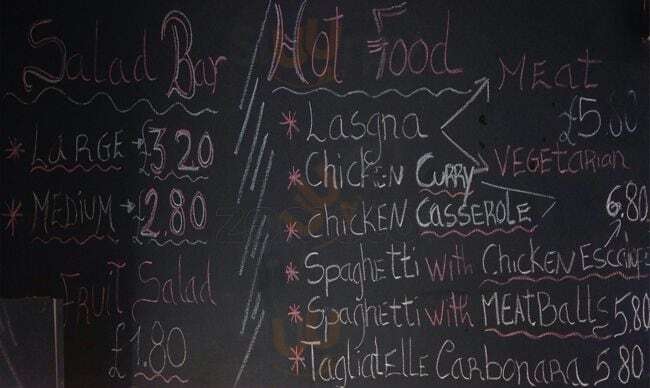 Salad Bar
LARGE £3.20
MEDIUM £2.80
FRUIT Salad
£1.80
Hot Food
MEAT
£5.80
Lasgna
VEGETARIAN
Chicken Curry
CHICKEN CASSEROLE
6.80
Spaghetti with CHICKEN
Spaghetti with MEATBallS 5.80
TagliatELLE Carbonara 5.80